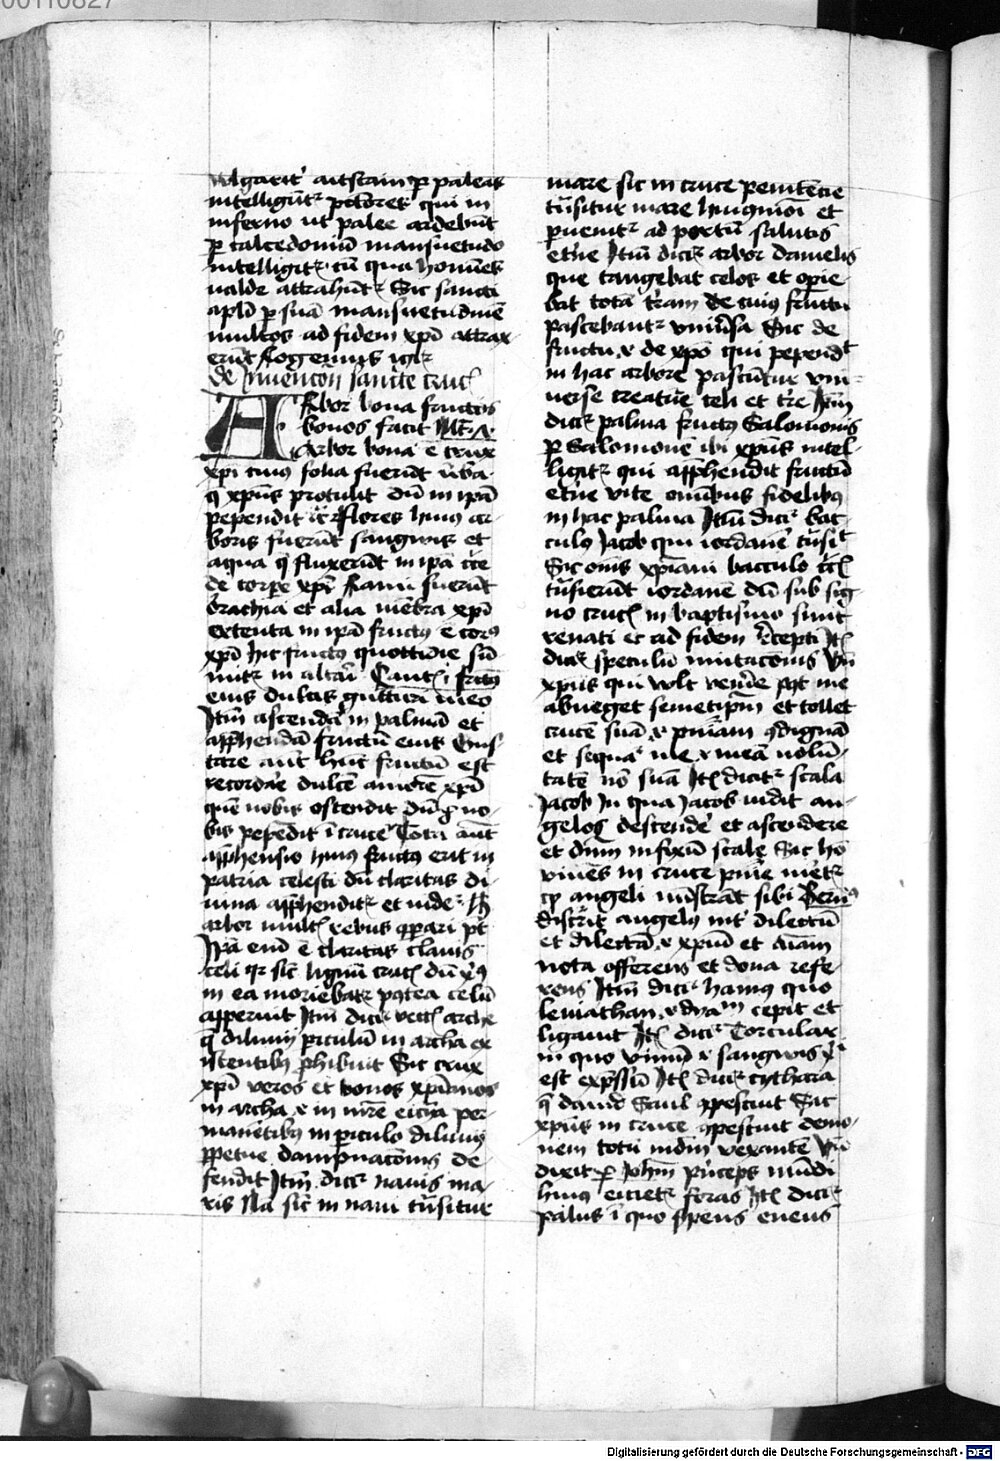 00110827
vulgarit' aut stain p paleas
intelligūt peccōres qui in
inferno ut palee ardebūt
p calcedoniū mansuetudo
intelligit cū qua homines
valde attrahūt Sic sancti
apłi p suā mansuetudinē
multos ad fidem xpi attrax
erūt Rogemus igr
de Invencōn sancte cruc
Arbor bona fructus
bonos facit Mt
Arbor bona ē crux
xpi cuius folia fuerūt v̄ba
q xpus protulit dū in ipa
pependit Flores huius ar
boris fuerūt sangwis et
aqua q fluxerūt in ipa
de corpe xpi Rami fuerūt
brachia et alia mēbra xpi
extenta in ipa fructus ē corp
xpi hic fructus quottidie su
mit in altari Cant i fruct
eius dulcis gutturi meo
Itm ascendā in palmā et
apphendā fructū eius Gus
tare aut hūc fructū est
recordare dulcē amorē xpi
quē nobis ostendit dū p no
bis pepēdit ī cruce Tota aūt
apphensio huius fructus erit in
patria celesti dū claritas di
vina apphendit et videt
arbor mult rebus cōpari pt
Ipa enī ē claritas clavis
celi qr sic lignū cruc dū xps
in ea moriebat postea celū
apperuit Itm dicit vect arche
q diluvii piculū in archa ex
istentibus phibuit Sic crux
xpi veros et bonos xpianos
in archa in mre ecclia per
manētibus in piculo diluvii
ppetue dampnacōnis de
fendit Itm dicit navis ma
ris Na sic in navi tūsitur
mare sic in cruce penitēcie
tūsitur mare huius mōi et
pvenit ad portū salutis
etne Itm dicit arbor Danielis
que tangebat celos et operie
bat totā tram de cuius fructu
pascebant universa Sic de
fructu de xpo qui pepend
in hac arbore pascūtur uni
verse creature celi et tre Itm
dicit palma fructus Salomonis
p Salomonē ibi xpus intel
ligit qui apphendit fructū
etne vite omnibus fidelibus
in hac palma Itm dicit bac
culus Jacob qui iordanē tūsit
Sic omis xpiani bacculo
tūsierūt iordanē dū sub sig
no cruc in baptismo sunt
renati et ad fidem recepti It
dicit speculū imitacōnis Vn
xpus qui vult venire post me
abneget semetipm et tollet
crucē suā pniam 9dignā
et sequat me meā volūn
tatē nō suā It dicit scala
Jacob In qua Jacob vidit an
gelos descendē et ascendere
et dnm infixū scale Sic ho
viuēs in cruce pnie
angeli mīstrāt sibi Bern
discrit angelus int dilectū
et dilectā xpm et aīam
vota offerens et dona refe
rens Itm dicit hamus quo
leviathan dya cepit et
ligavit It dicit Torcular
in quo vinum sangwis
est expssū It dicit cythara
q david Saul 9pescuit Sic
xpus in cruce 9pescuit demo
nem totū mdm vexantē Vn
dixit p Johm Princeps mūdi
huius eiciet foras It dicit
palus ī quo spens eneus
Digitalisierung gefördert durch die Deutsche Forschungsgemeinschaft - DFG